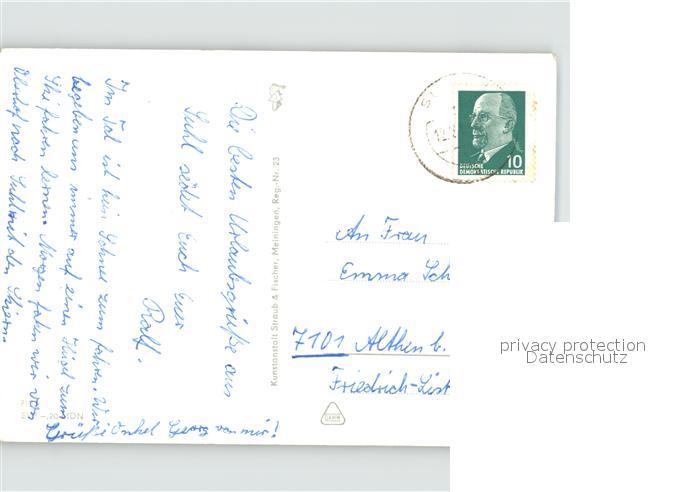 Die besten Urlaubsgrüße aus
Suhl sendet Euch Euer
Ralf.
Im Tal ist kein Schnee zum fahren. Wir
begeben uns immer auf einen Hügel zum
Ski fahren lernen. Morgen fahren wir von
Oberhof nach Suhl mit den Skiern.
Grüße Onkel Georg von mir!
Kunstanstalt Straub & Fischer, Meiningen, Reg.-Nr. 23
DEUTSCHE
DEMOKRATISCHE REPUBLIK
10
An Frau
Emma Sch
7101 Althen b.
Friedrich-List
privacy protection
Datenschutz